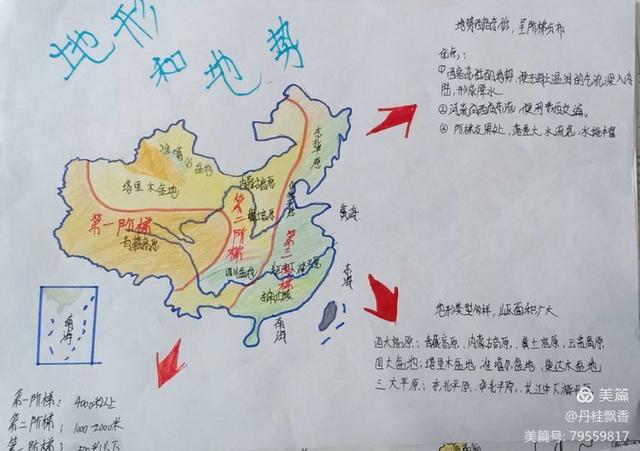 地形
和地势
地势西高东低，呈阶梯分布
优点：
①西高东低的地势，便于海上湿润的气流深入内
陆，形成降水
东西交通
③ 阶梯交界处，落差大，水流急，水能丰富
东北平原
准噶尔盆地
塔里木盆地
内蒙古高原
第一阶梯
青藏高原
第二阶梯
黄土高原
华北平原
第三阶梯
四川盆地
黄海
东海
南海
南海
地形类型多样，山区面积广大
四大高原：青藏高原，内蒙古高原，黄土高原，云贵高原
四大盆地：塔里木盆地，准噶尔盆地，柴达木盆地
三大平原：东北平原，华北平原，长江中下游平原
第一阶梯：4000米以上
第二阶梯：1000-2000米
第三阶梯：500米以下
美篇
@丹桂飘香
美篇号：79559817